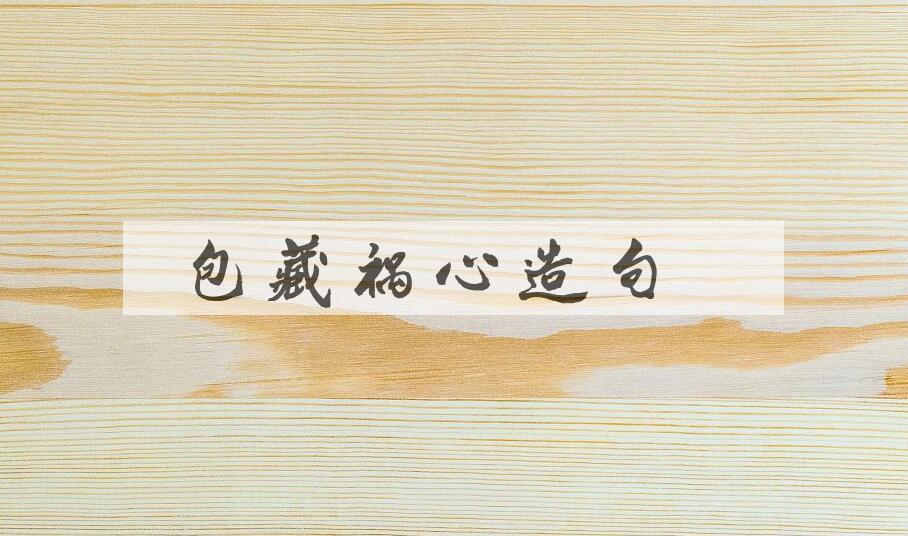 包藏祸心造句